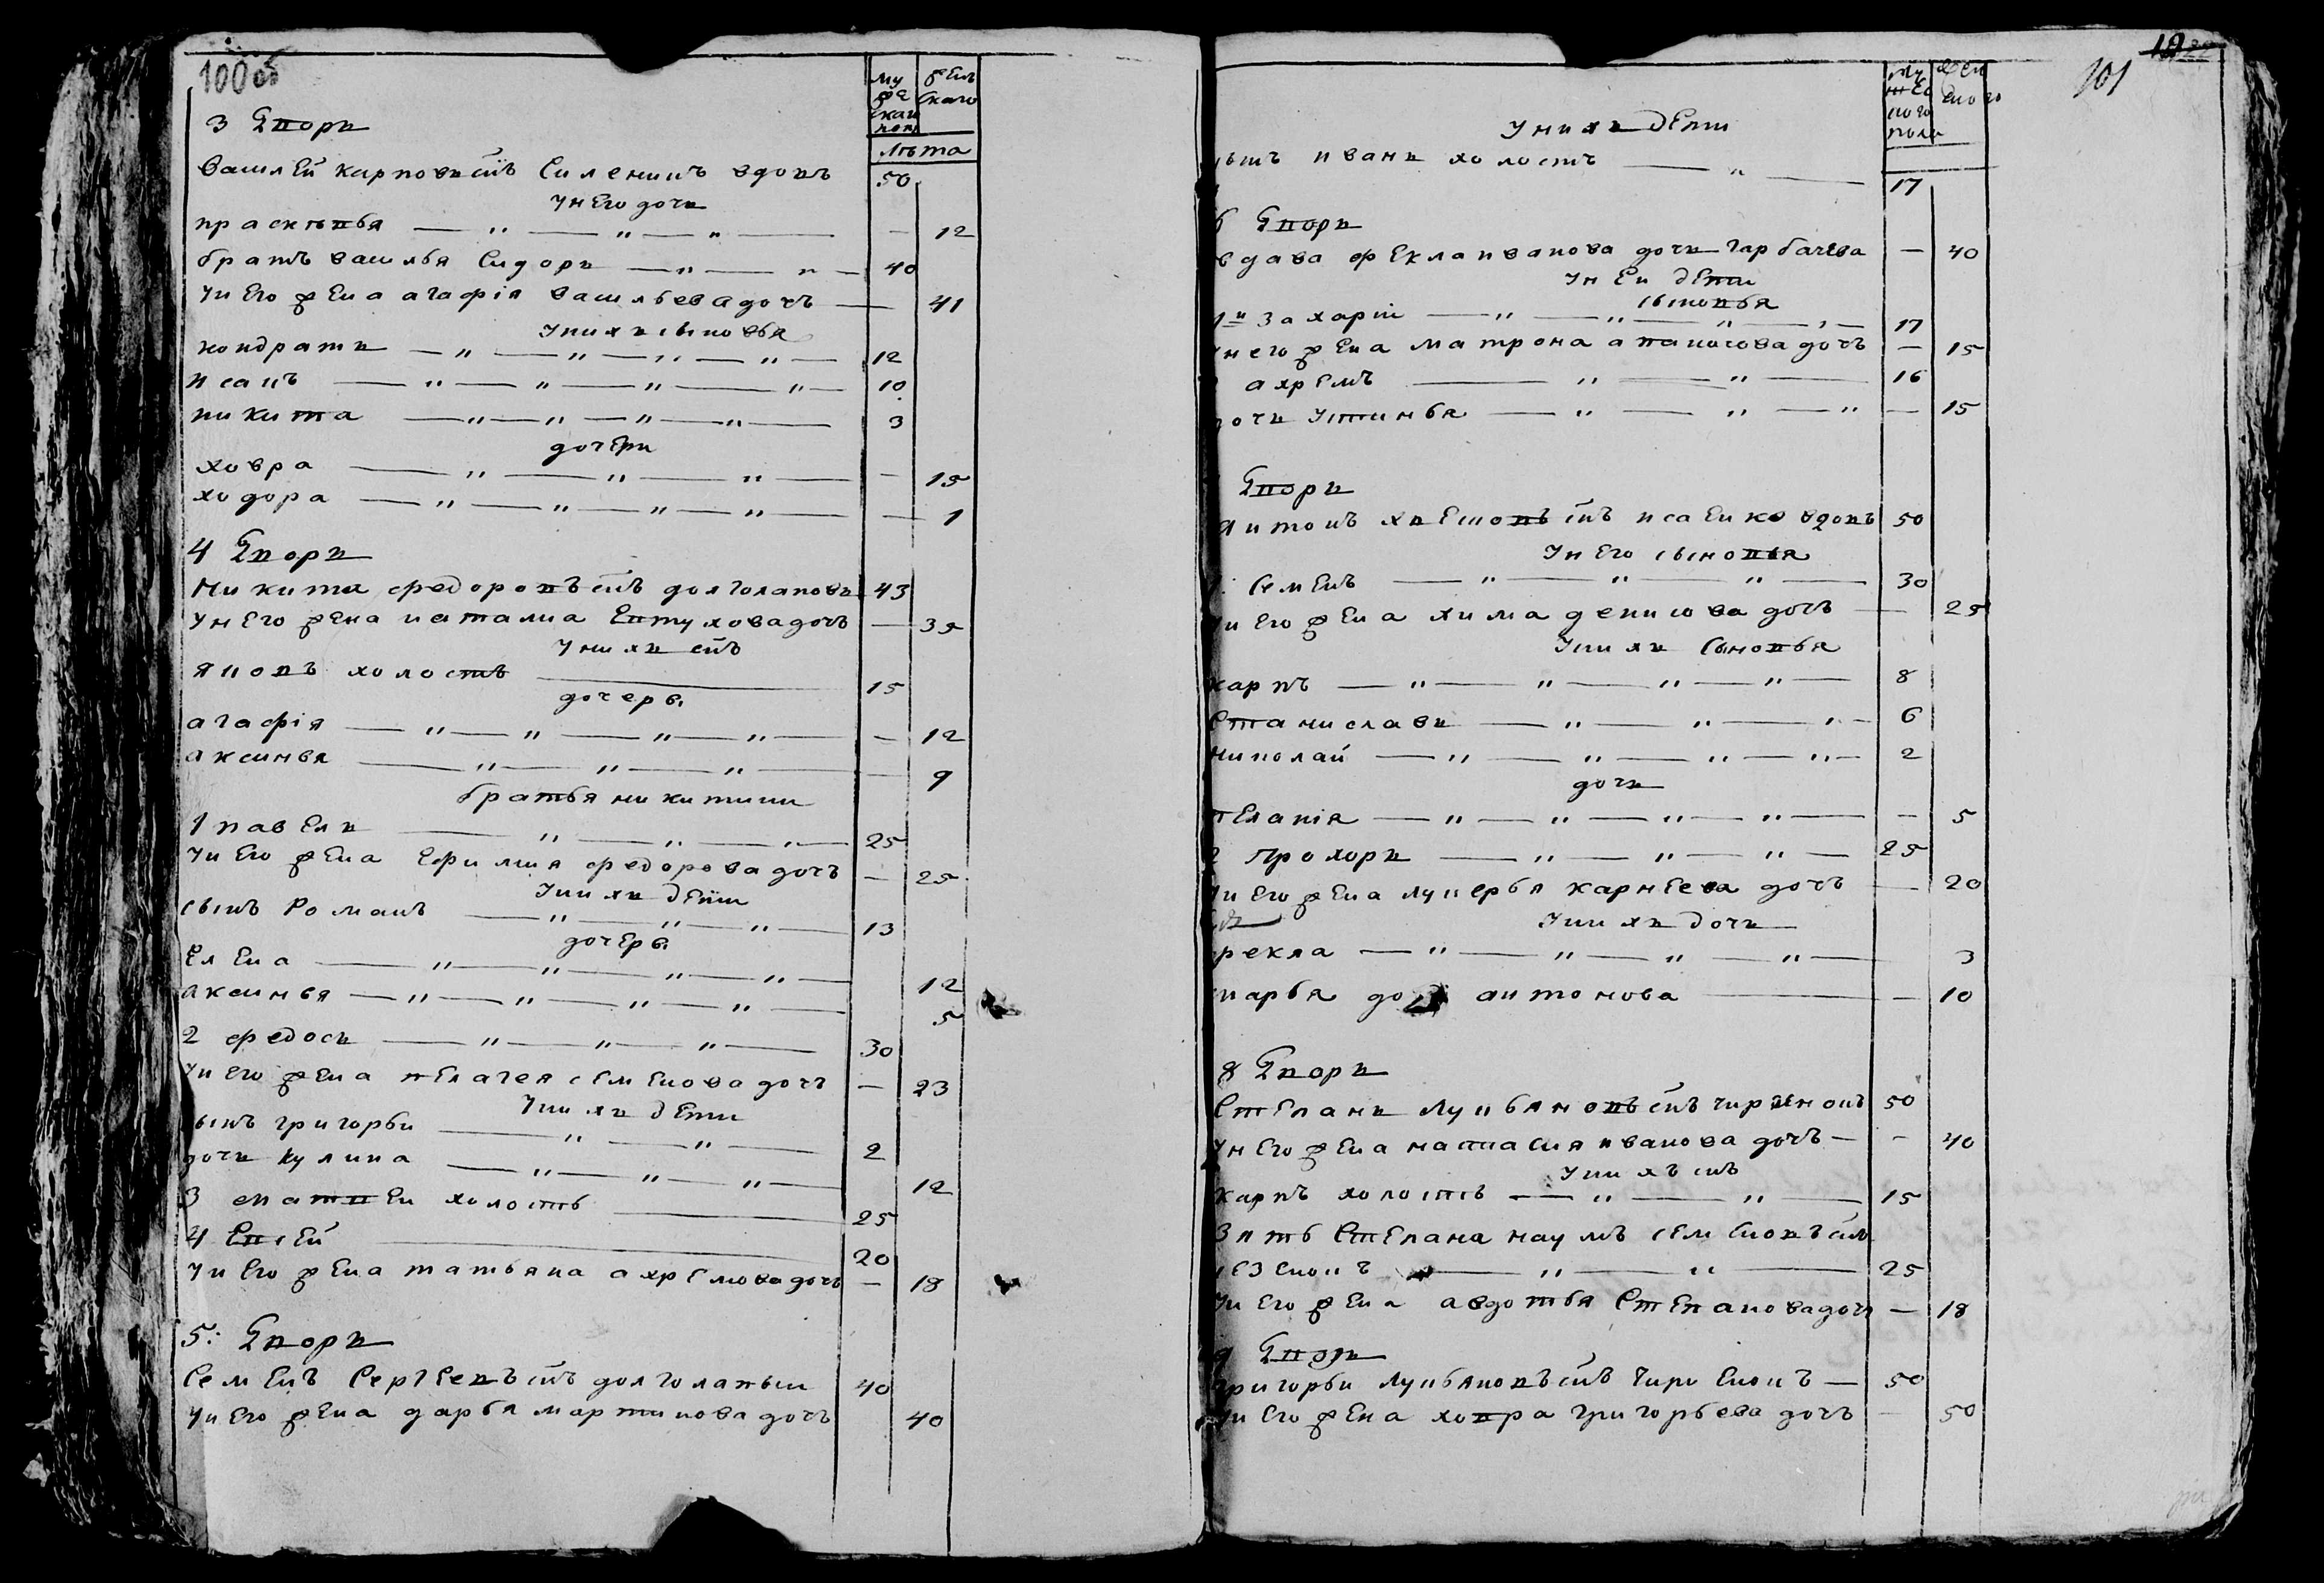 100 об
мужескаго пола
женскаго
лѣта
3 Двори
Василей карповъ снъ Силенинъ вдовъ 50
У него дочи
прасковья — 12
братъ василья Сидори 40
У него жена агафія васильева дочъ — 41
У нихъ сыновья
кондрати 12
исакъ 10
никита 3
дочери
ховра — 15
ходора — 1
4 Двори
Никита федоровъ снъ долголаповъ 43
У него жена наталиа Евтухова дочъ — 35
У нихъ снъ
яковъ холостъ 15
дочерь
агафія — 12
аксинья — 9
братья никитини
1 павели 25
У него жена Ефимия федорова дочъ — 25
У нихъ дети
сынъ Романъ 13
дочерь
Елена 12
аксинья 5
2 федоси 30
У него жена пелагея семенова дочъ — 23
У нихъ дети
сынъ григорьи 2
дочи кулина 12
3 матвеи холостъ 25
4 Евсей 20
У него жена татьяна ахремова дочъ — 18
5: Двори
Семенъ Сергеевъ снъ долголапыи 40
У него жена дарья мартинова дочъ 40
101
мужескаго пола
женского
У нихъ дети
сынъ иванъ холостъ 17
6 Двори
вдава фекла иванова дочи Гарбачева — 40
У неи дети
сыновья
1й Захарій 17
У него жена матрона апанасова дочъ — 15
ахремъ 16
дочи Устинья — 15
Двори
Антонъ снъ исаенко вдовъ 50
У него сыновья
1: Семенъ 30
У него жена хима денисова дочъ — 25
У нихъ Сыновья
карпъ 8
Станиславъ 6
николай 2
дочи
пелагія — 5
2 прохоръ 25
У него жена лукерья карнеева дочъ — 20
У нихъ дочи
фекла 3
марья антонова — 10
8 Двори
Степанъ Лукьяновъ снъ 50
У него жена настасия иванова дочъ — 40
У нихъ снъ
карпъ холостъ 15
Зять Степана наумъ семеновъ снъ
25
У него жена авдотья Степанова дочъ — 18
9 Двори
григорьи Лукьяновъ снъ 50
У него жена ховра григорьева дочъ — 50